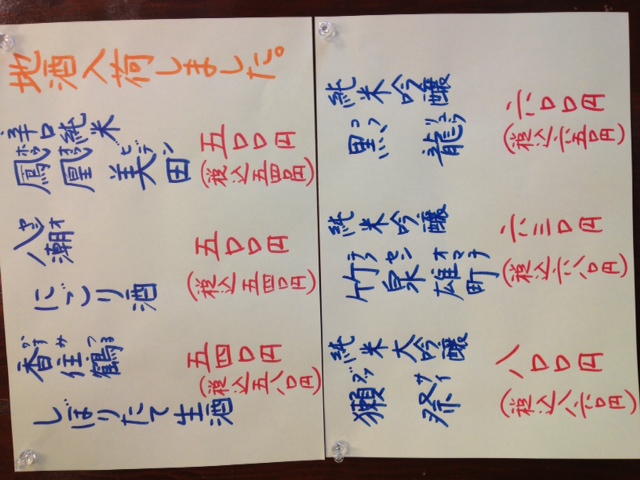 地酒入荷しました。
辛口純米
ホウオウ ビデン
鳳凰美田
五〇〇円
(税込五四〇円)
ヤシオ
八潮
にごり酒
五〇〇円
(税込五四〇円)
かすみつる
香住鶴
しぼりたて生酒
五四〇円
(税込五八〇円)
純米吟醸
黒龍
六〇〇円
(税込六五〇円)
純米吟醸
竹泉 雄町
六三〇円
(税込六八〇円)
純米大吟醸
獺祭
八〇〇円
(税込八六〇円)